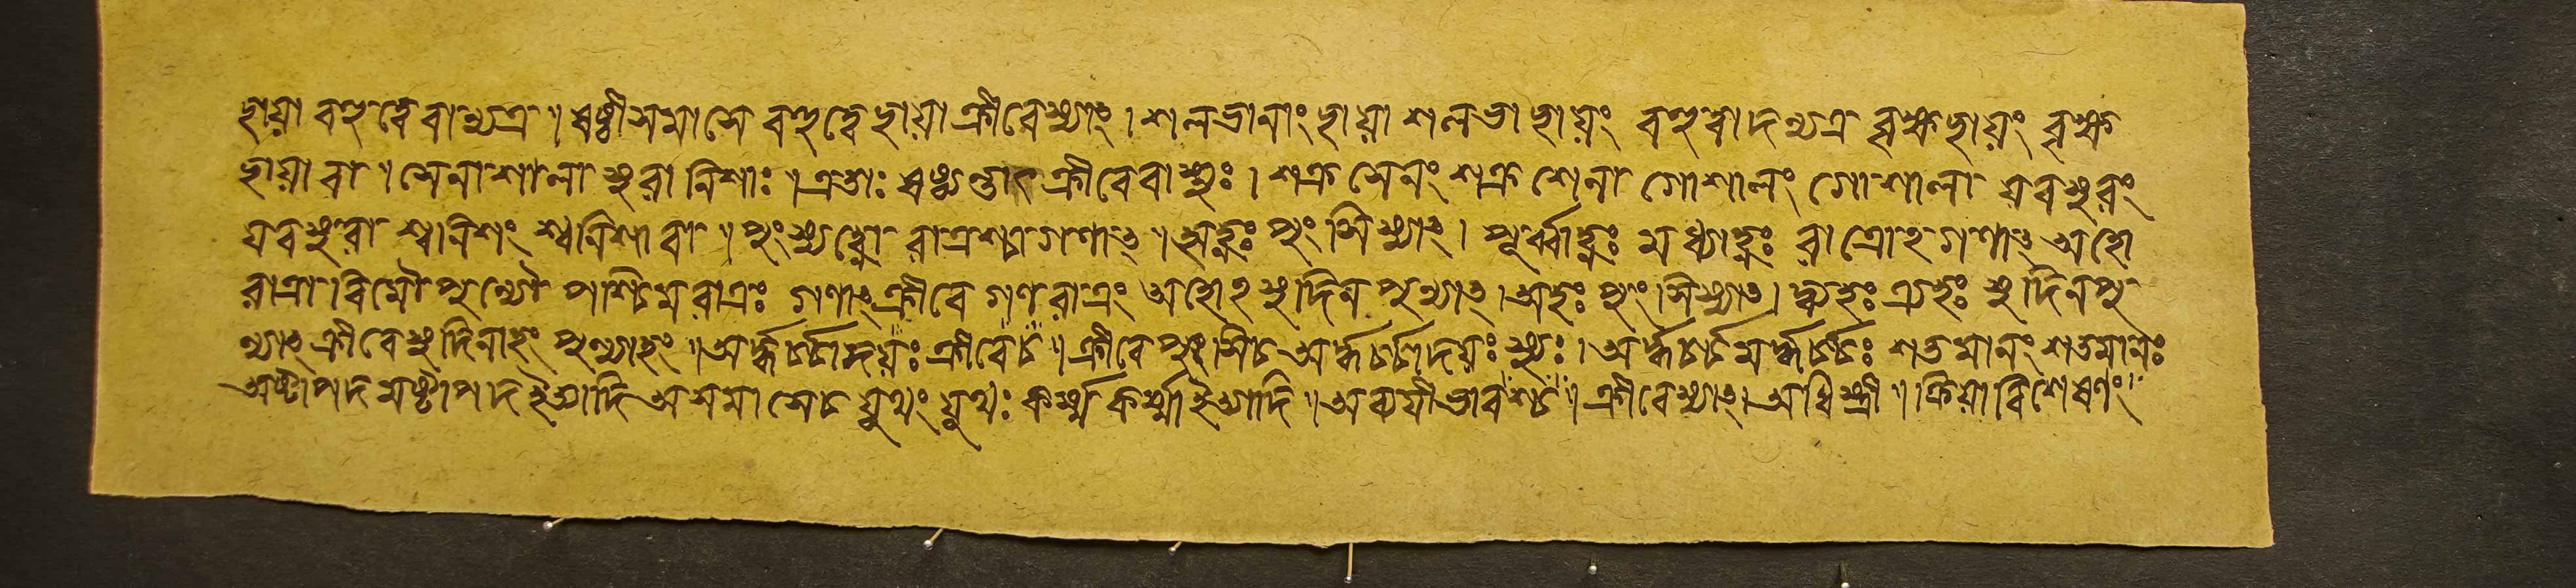 ছায়া বহুত্বে বান্যত্র ॥ ষষ্ঠীসমাসে বহুত্বে ছায়া ক্লীবে স্যাৎ । শলভানাং ছায়া শলভাছায়ং বহুত্বাদন্যত্র বৃক্ষছায়ং বৃক্ষ
ছায়া বা ॥ সেনা শালা সুরা নিশাঃ । এতাঃ ষষ্ঠ্যন্তাৎ ক্লীবে বা স্যুঃ । শত্রুসেনং শত্রুশেনা গোশালং গোশালা যবসুরং
যবসুরা শ্বনিশং শ্বনিশা বা ॥ পুংস্যহ্নো রাত্রশ্চাগণাৎ ॥ অহ্নঃ পুংসি স্যাৎ । পূর্ব্বাহ্নঃ মধ্যাহ্নঃ রাত্রোহগণাৎ অহো
রাত্রা বিমৌ পুণ্যৌ পশ্চিমরাত্রঃ গণাৎ ক্লীবে গণরাত্রং অহোহসুদিন পুন্যাৎ । অহঃ পুংসি স্যাৎ । দ্ব্যহঃ ত্র্যহঃ সুদিনপু
ন্যাৎ ক্লীবে সুদিনাহং পুন্যাহং ॥ অর্দ্ধর্চ্চাদয়ঃ ক্লীবে চ ॥ ক্লীবে পুংসি চ অর্দ্ধর্চ্চাদয়ঃ স্যুঃ । অর্দ্ধর্চ্চমর্দ্ধর্চ্চঃ শতমানং শতমানঃ
অষ্টাপদমষ্টাপদ ইত্যাদি অসমাসে চ যূথং যূথঃ কর্ম্ম কর্ম্মা ইত্যাদি ॥ অব্যয়ীভাবশ্চ ॥ ক্লীবে স্যাৎ । অধিস্ত্রী ॥ ক্রিয়াবিশেষণং